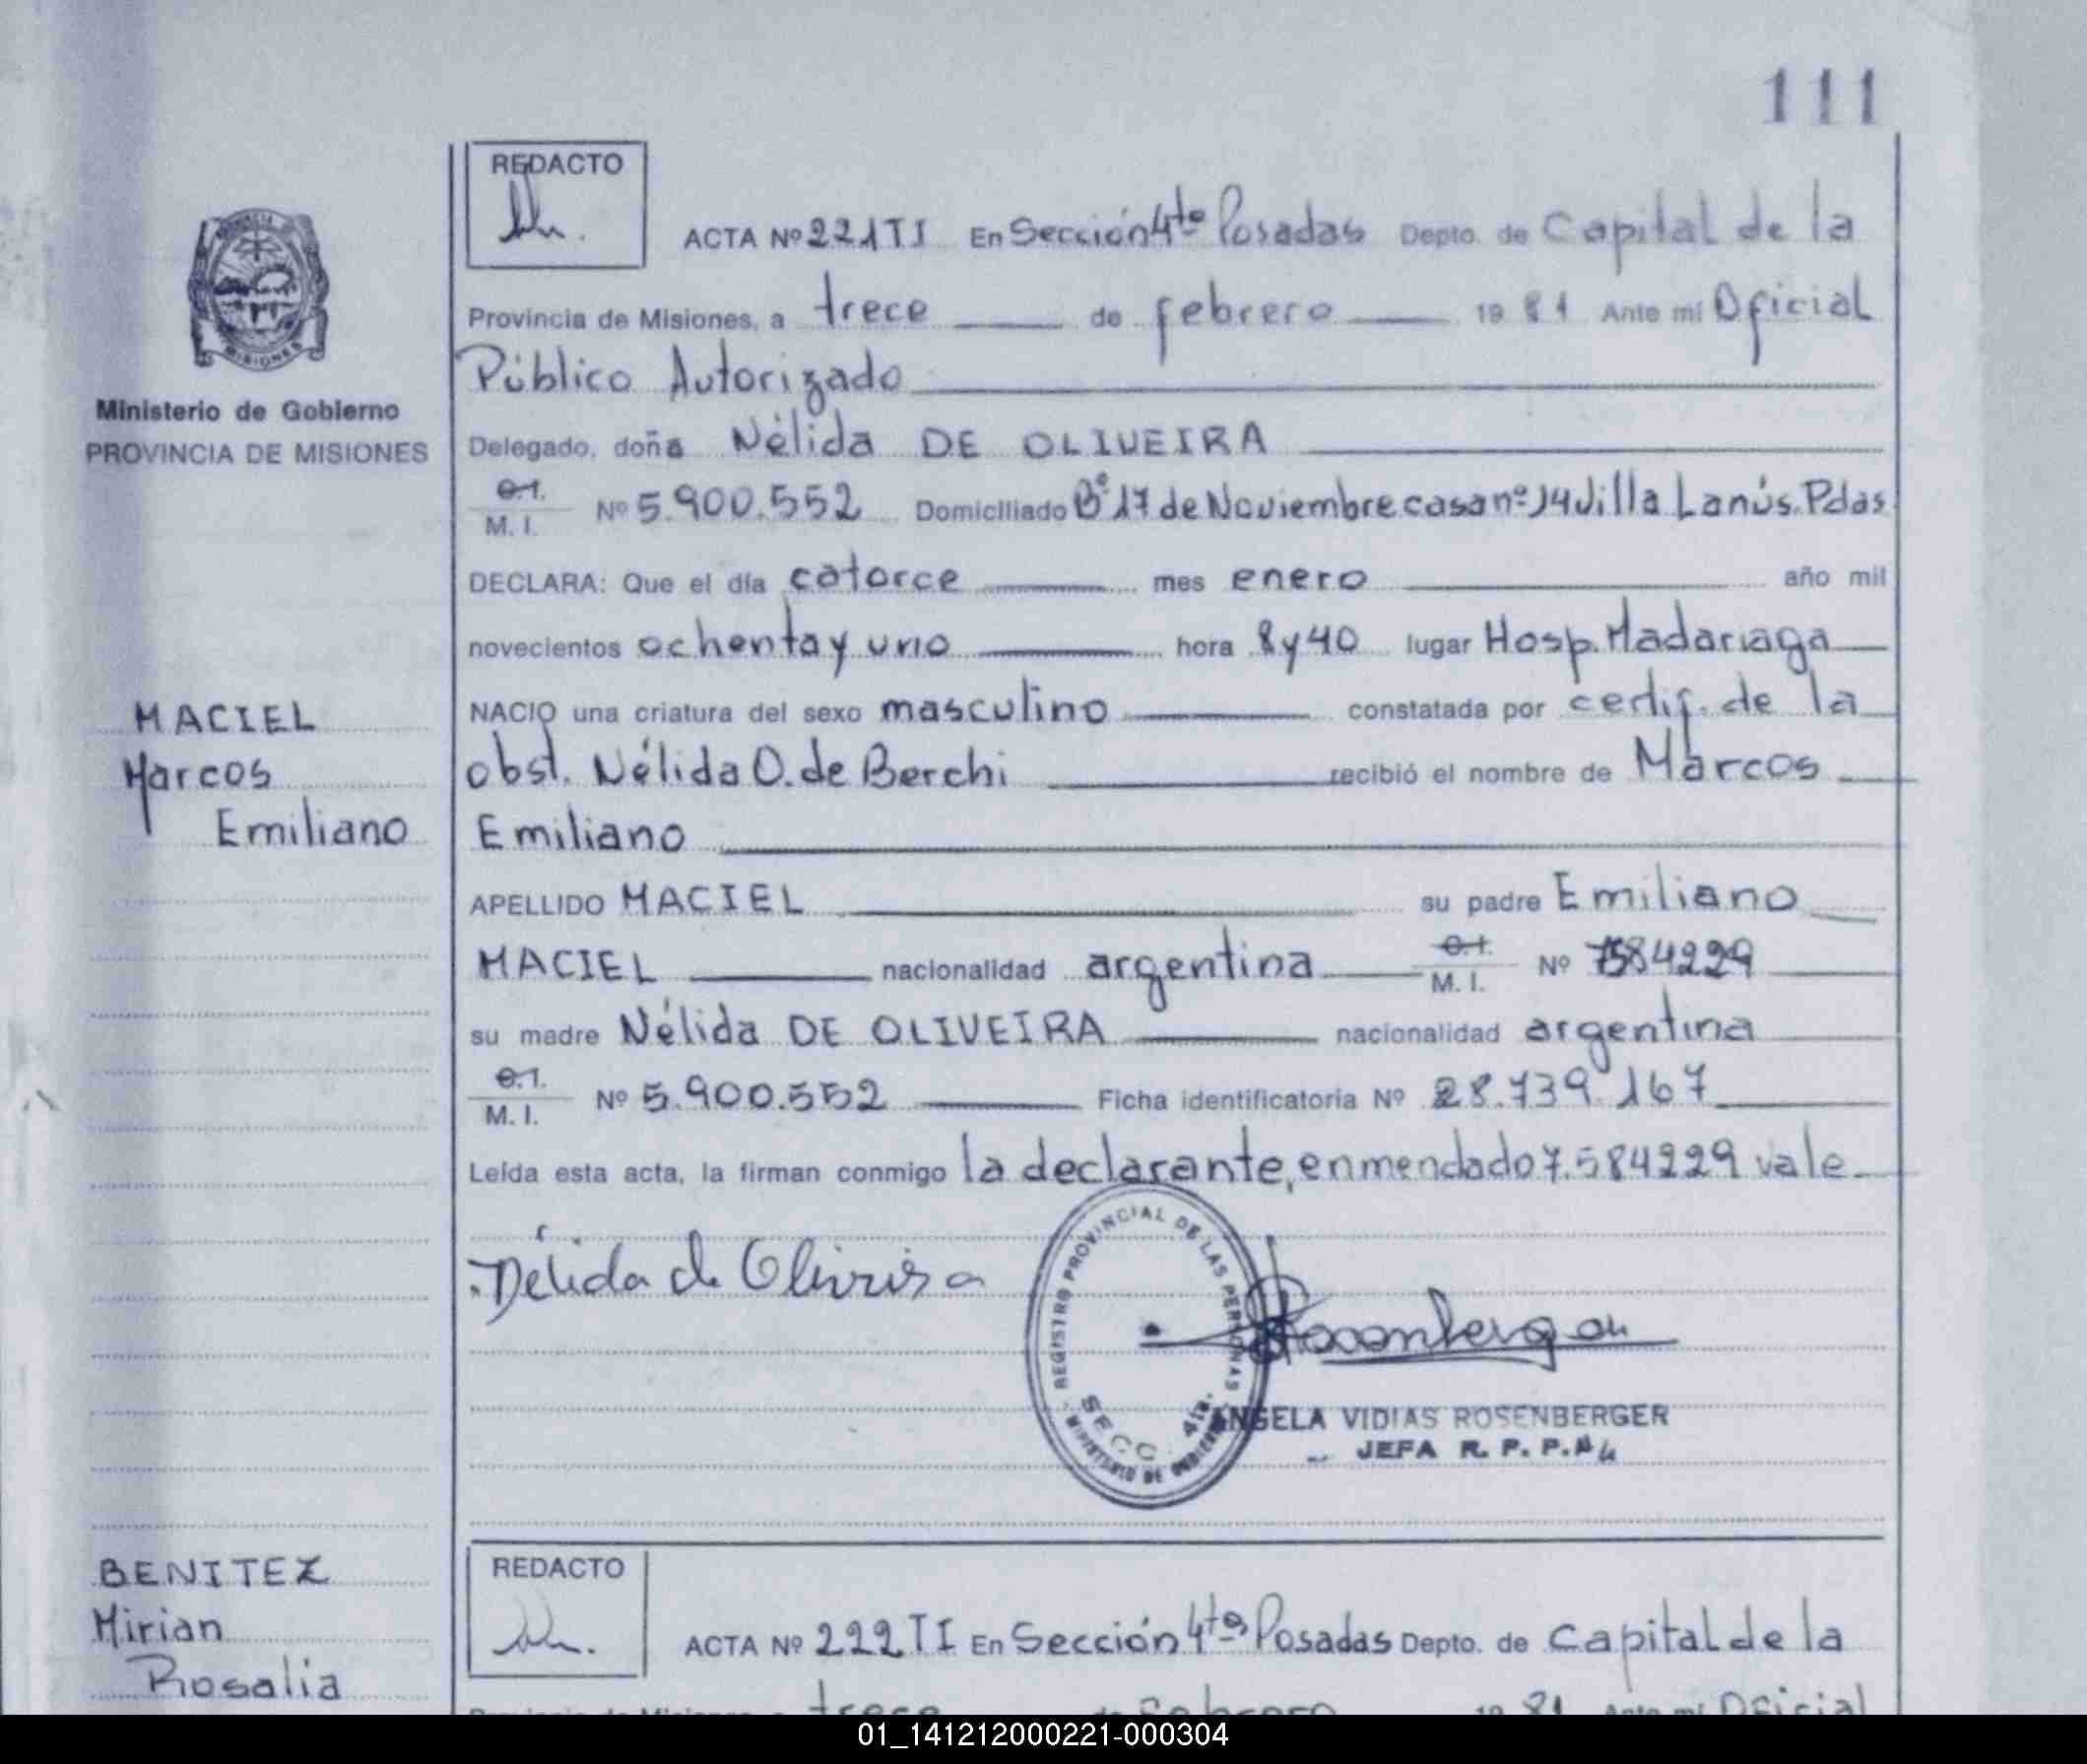 111
REDACTO
ACTA Nº 221 TI En Sección 4ta Posadas Depto. de Capital de la
Provincia de Misiones, a trece de febrero 19 81 Ante mí Oficial
Público Autorizado
Delegado, doña Nélida DE OLIVEIRA
C.I.
M. I. Nº 5.900.552 Domiciliado Bº 17 de Noviembre casa nº 14 Villa Lanús. Pdas
DECLARA: Que el día catorce mes enero año mil
novecientos ochenta y uno hora 8 y 40 lugar Hosp. Madariaga
NACIO una criatura del sexo masculino constatada por certif. de la
obst. Nélida O. de Berchi recibió el nombre de Marcos
Emiliano
APELLIDO MACIEL su padre Emiliano
MACIEL nacionalidad argentina C.I.
M. I. Nº 7584229
su madre Nélida DE OLIVEIRA nacionalidad argentina
C.I.
M. I. Nº 5.900.552 Ficha identificatoria Nº 28.739.167
Leída esta acta, la firman conmigo la declarante, enmendado 7.584229 vale
Nélida de Oliveira
REGISTRO PROVINCIAL DE LAS PERSONAS
SECC. 4ta.
MINISTERIO DE GOBIERNO
ANGELA VIDIAS ROSENBERGER
JEFA R. P. P. Nº 4
Ministerio de Gobierno
PROVINCIA DE MISIONES
MACIEL
Marcos
Emiliano
BENITEZ
Mirian
Rosalia
REDACTO
ACTA Nº 222 TI En Sección 4ta Posadas Depto. de Capital de la
Provincia de Misiones, a trece de febrero 19 81 Ante mí Oficial
01_141212000221-000304